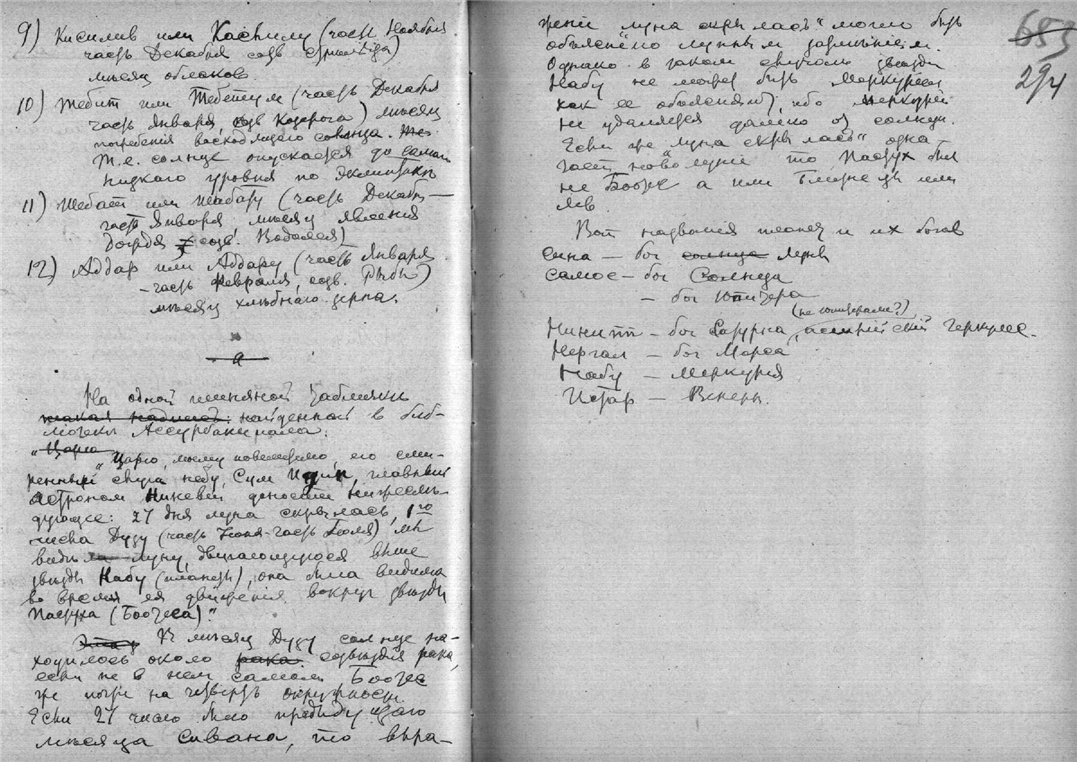 9) Кисилив или Касһилу (часть Ноября
часть Декабря созв. Стрельца)
мѣсяц облаков.
10) Тебит или Тебетум (часть Декабря
часть Января, созв Козерога) мѣсяц
погребения восходящего солнца.
Т.е. солнце опускается до самаго
низкаго уровня по эклиптикѣ
11) Шебат или Шабату (часть Декабр-
часть Января мѣсяц явления
дождя созв. Водолея)
12) Аддар или Аддару (часть Января
-часть Февраля, созв. Рыбы)
мѣсяц хлѣбнаго зерна.
На одной глиняной таблички
такая надпись: найденной в биб-
лиотекѣ Ассурбанипала:
"Царю
"Царю, моему повелителю, его сми-
ренный слуга Небу, Сум Идин, главный
астроном Ниневеи доносит нижеслѣ-
дующее: 27 дня луна скрылась, 1го
числа Дузу (часть Июня-часть Июля) мы
видѣли луну, двигающуюся выше
звѣзды Набу (планеты), она была видима
во время ея движения вокруг звѣзды
Пастуха (Боотеса)."
В мѣсяц Дузу солнце на-
ходилось около рака созвѣздия рака,
если не в нем самом. Боотес
же почти на четверть окружности
Если 27 число было предыдущаго
мѣсяца Сивана, то выра-
жение луна скрылась" могло быть
объяснено лунным затмѣнием.
Однако в таком случаѣ звѣзды
Набу не может быть Меркурием
как ее объясняют, ибо Меркурий
не удаляется далеко от солнца.
Если же "луна скрылась" озна-
чает новолуние то Пастух был
не Боотес а или Близнецы или
Лев.
Вот названия планет и их богов
Сина – бог солнце Луны
Самос – бог Солнца
– бог Юпитера
(не Юпитера ли?)
Нинипп – бог Сатурна, ассирийский Геркулес.
Нергал – бог Марса
Набу – Меркурия
Истар – Венеры.
653
294